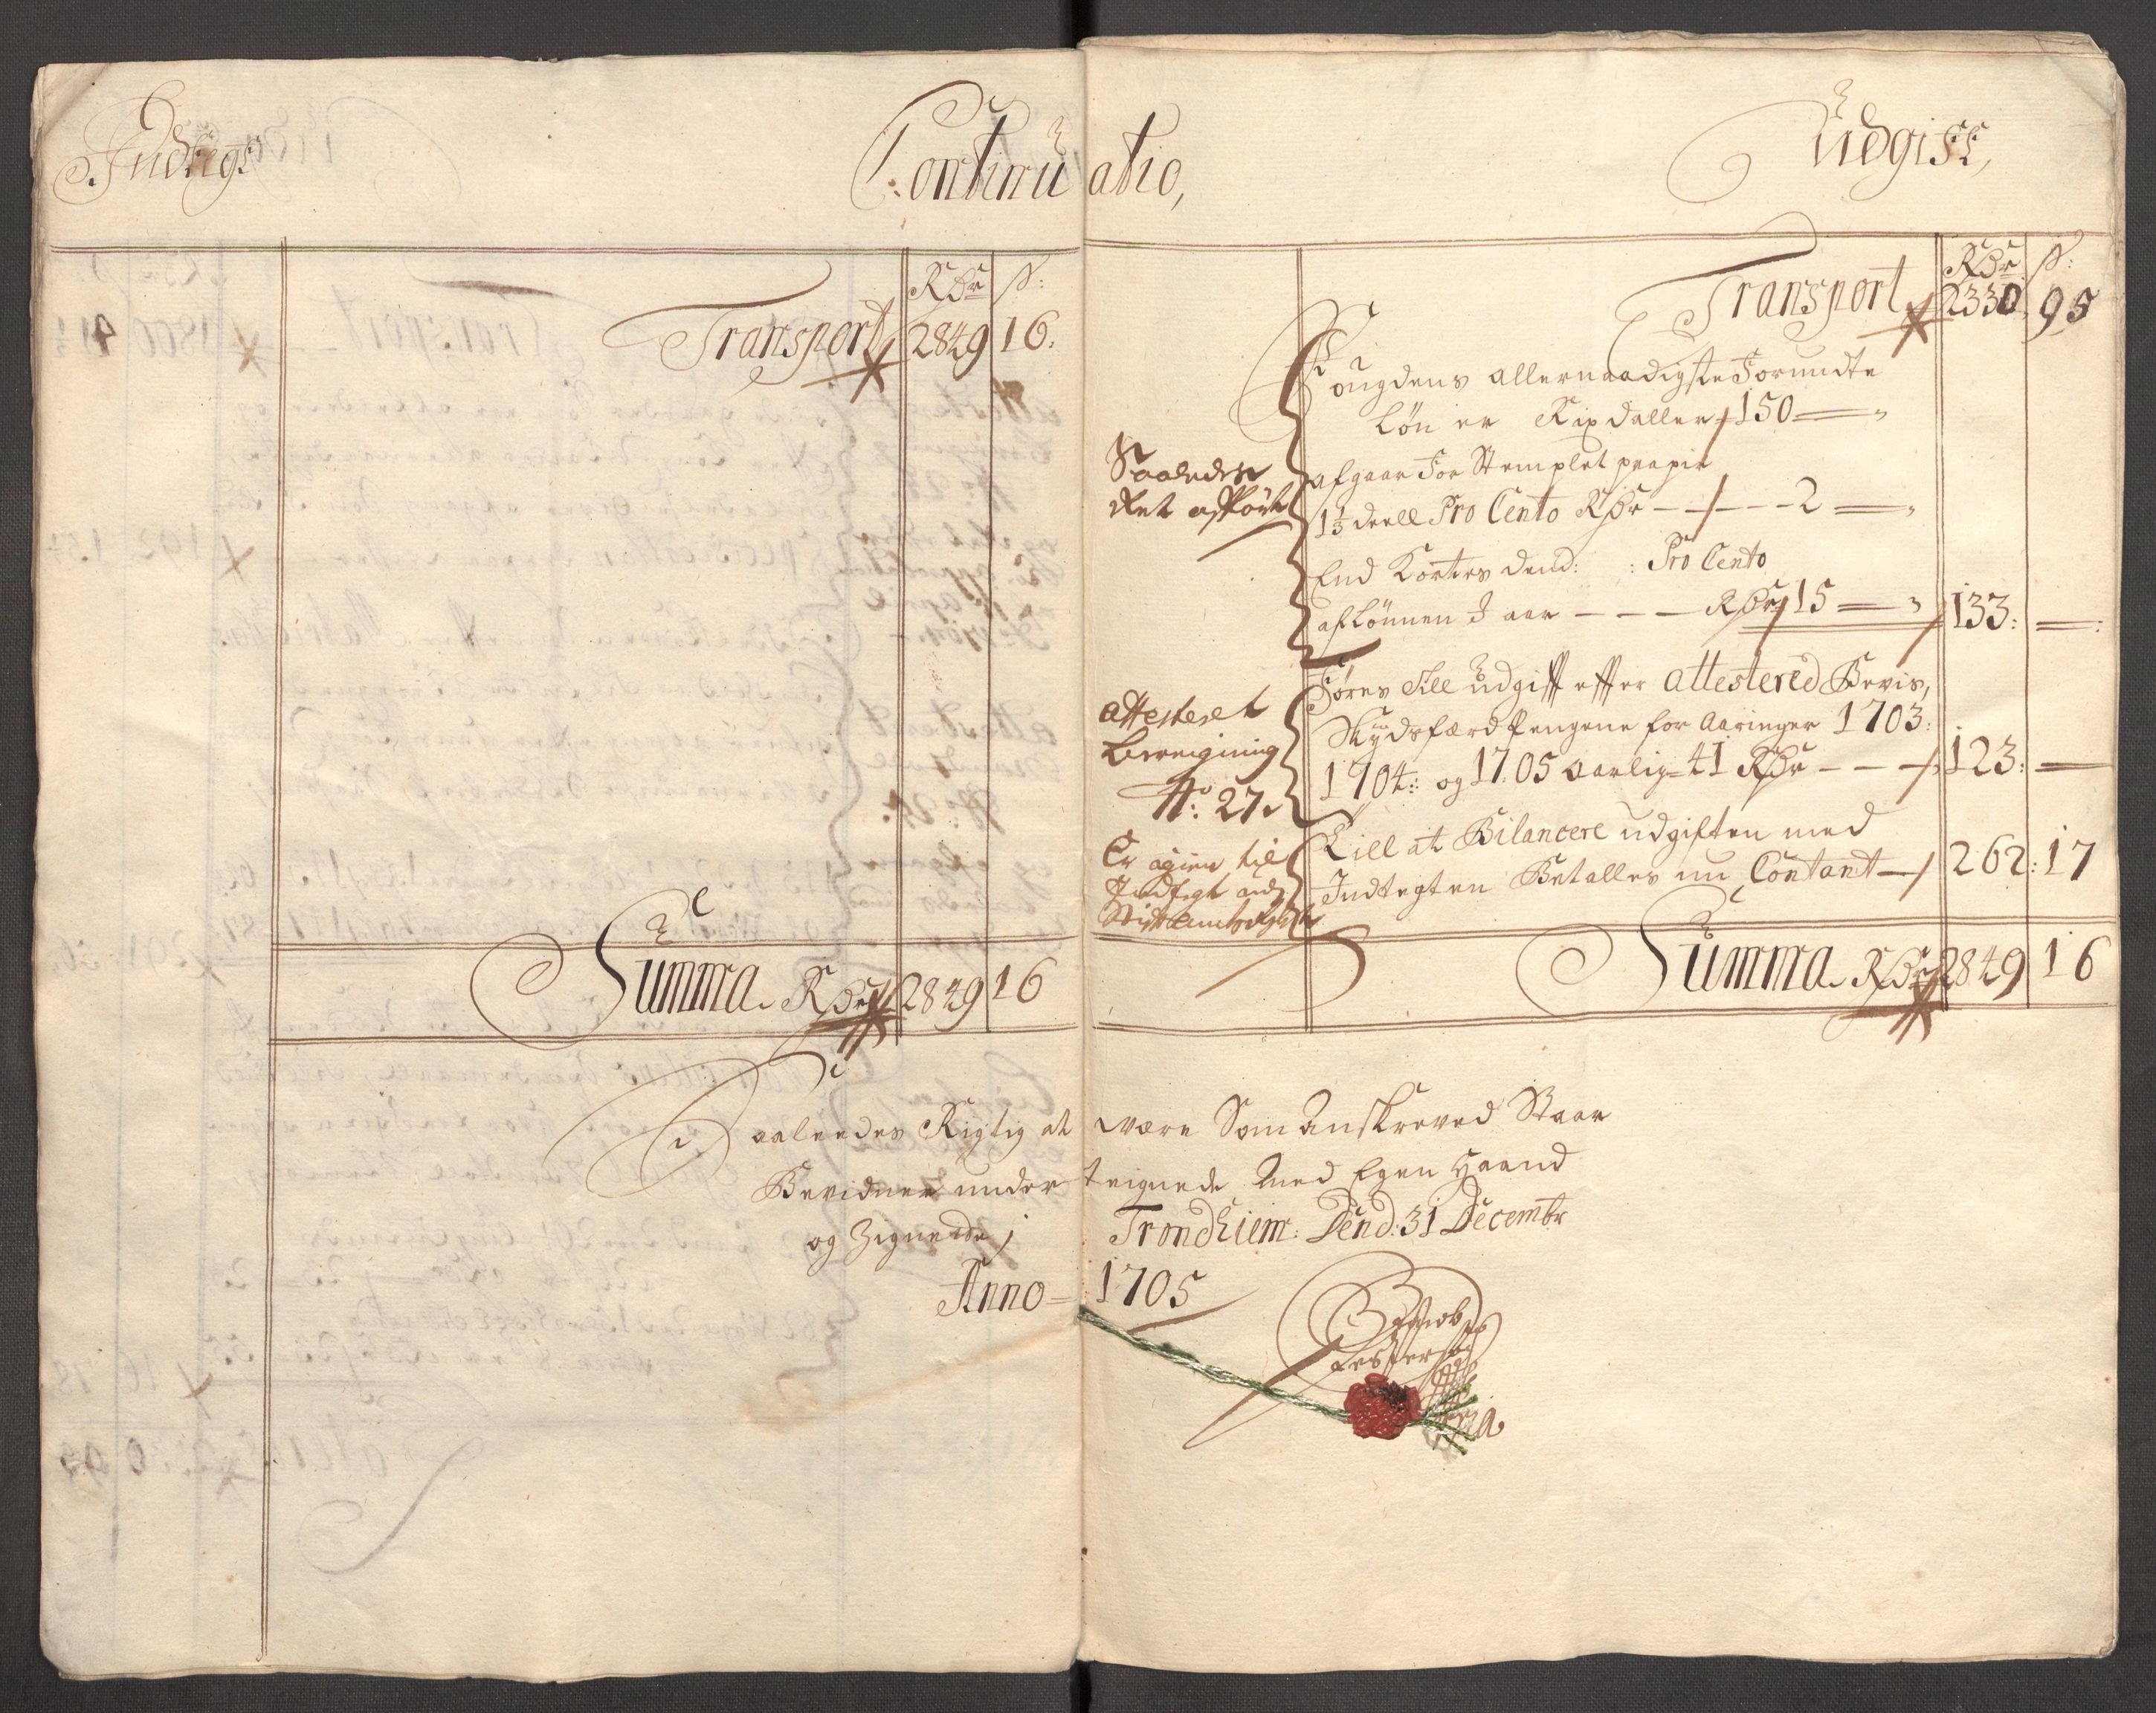 Indtegt
Continu atio,
Udgift,
Rdr ß:
Transport 2849 16.
Summa Rdr 2849 16
Rdr ß:
Transport 2330 95
Fougdens allernaadigste Forundte
Løn er Rixdaller 150
Saaledes
ret afført
afgaar For Stemplet papir
1⅓ deell Pro Cento Rdr - - - - 2
End Kortes dend: : Pro Cento
af Lønnen I aar - - - Rdr 15 133:
attesteret
beregning
No: 27.
Føres till udgift efter attestered Bevis,
Skydsfærd Pengene for Aaringer 1703:
1704: og 1705 aarlig 41 Rdr - - - 123:
Er igien til
Indtegt
Till at Bilancere udgiften med
Indtegten Betalles nu Contant 262: 17
Summa Rdr 2849 16
Saaleedes Rigtig at være Som Anskreved Staar
Bevidner under teignede Med Egen Haand
og Zignette, Trondhiem: Dend: 31 Decembr
Anno 1705